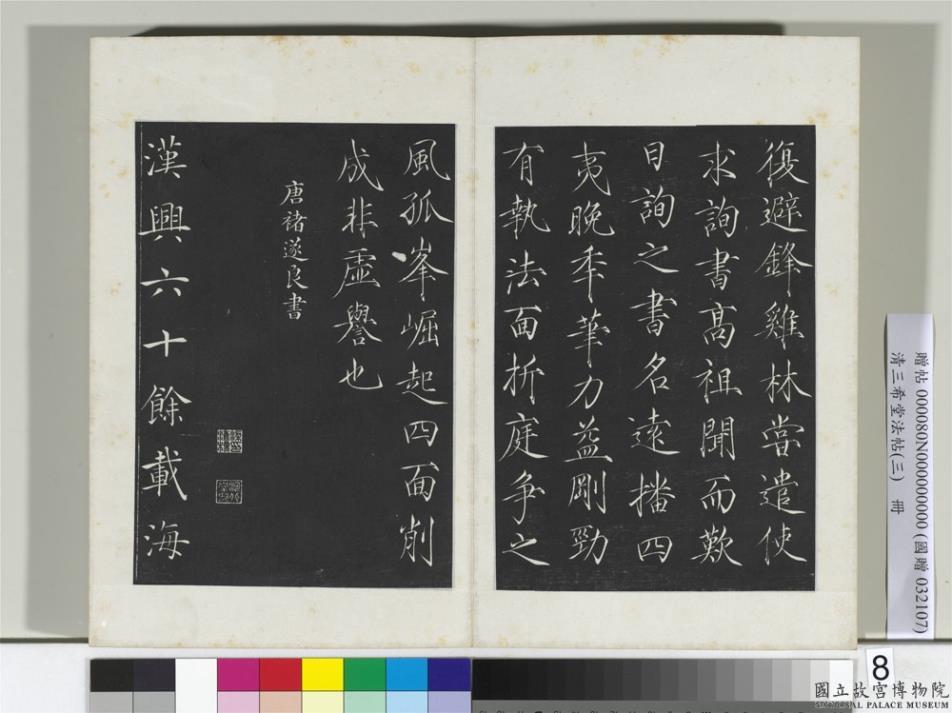 復避鋒雞林嘗遣使
求詢書高祖聞而歎
日詢之書名遠播四
夷晚年筆力益剛勁
有執法面折庭争之
風孤峯崛起四面削
成非虛譽也
唐褚遂良書
漢興六十餘載海
贈帖 000080N000000000 (國贈 032107)
清三希堂法帖(三) 冊
8
國立故宮博物院
NATIONAL PALACE MUSEUM